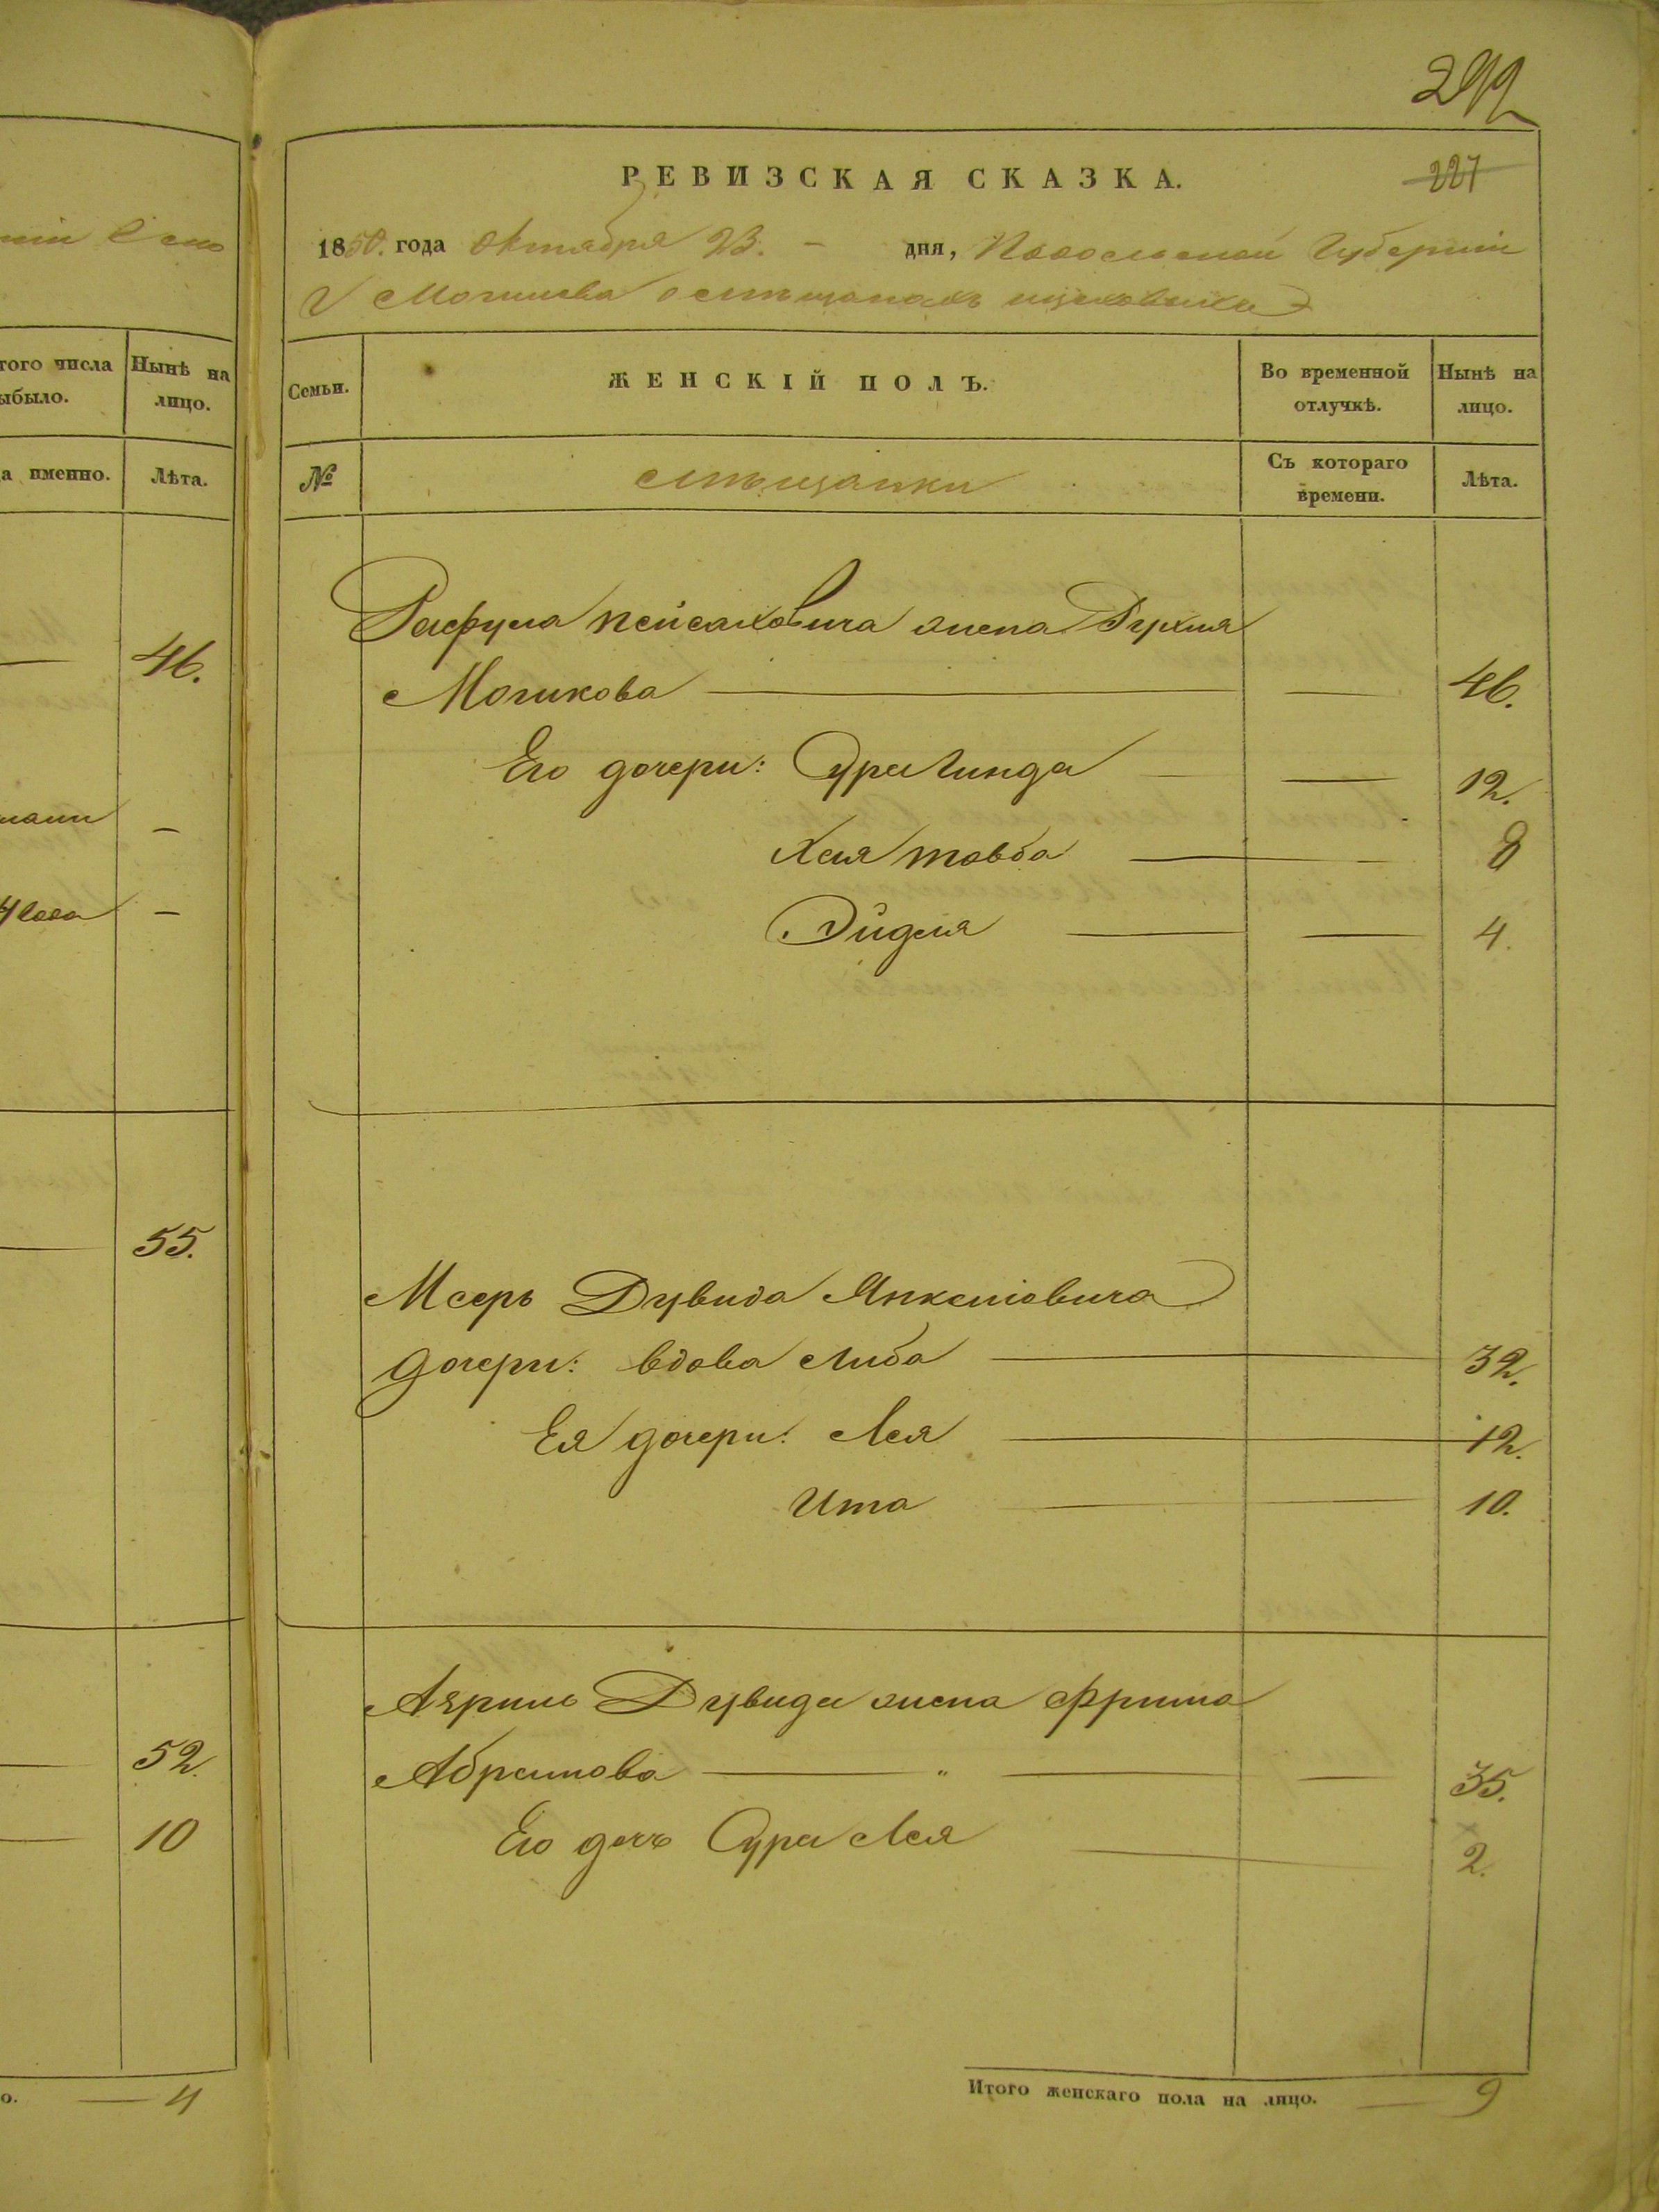 292
РЕВИЗСКАЯ СКАЗКА.
227
1850. года Октября 23. – дня, Подольской Губерніи
Могилева о мѣщанахъ
того числа
Нынѣ на
лицо.
Лѣта.
46.
—
—
55.
52.
10
4
Семьи.
ЖЕНСКІЙ ПОЛЪ.
Во временной
отлучкѣ.
Нынѣ на
лицо.
№
мѣщанки
Съ котораго
времени.
Лѣта.
Рахмила Пейсаховича жена Рухля
Мошкова — — 46.
Его дочери: Сура Гинда — — 12.
Хая товба — — 8
Эйдля — — 4.
Мееръ Дувида Янкелiовича
Дочери: вдова Либа — 32.
Ея дочери: Лея — 12.
Ита — — 10.
Азриль Дувида жена Фрима
Абрамова — " — — 35.
Его дочь Сура Лея — 2.
Итого женскаго пола на лицо. — 9